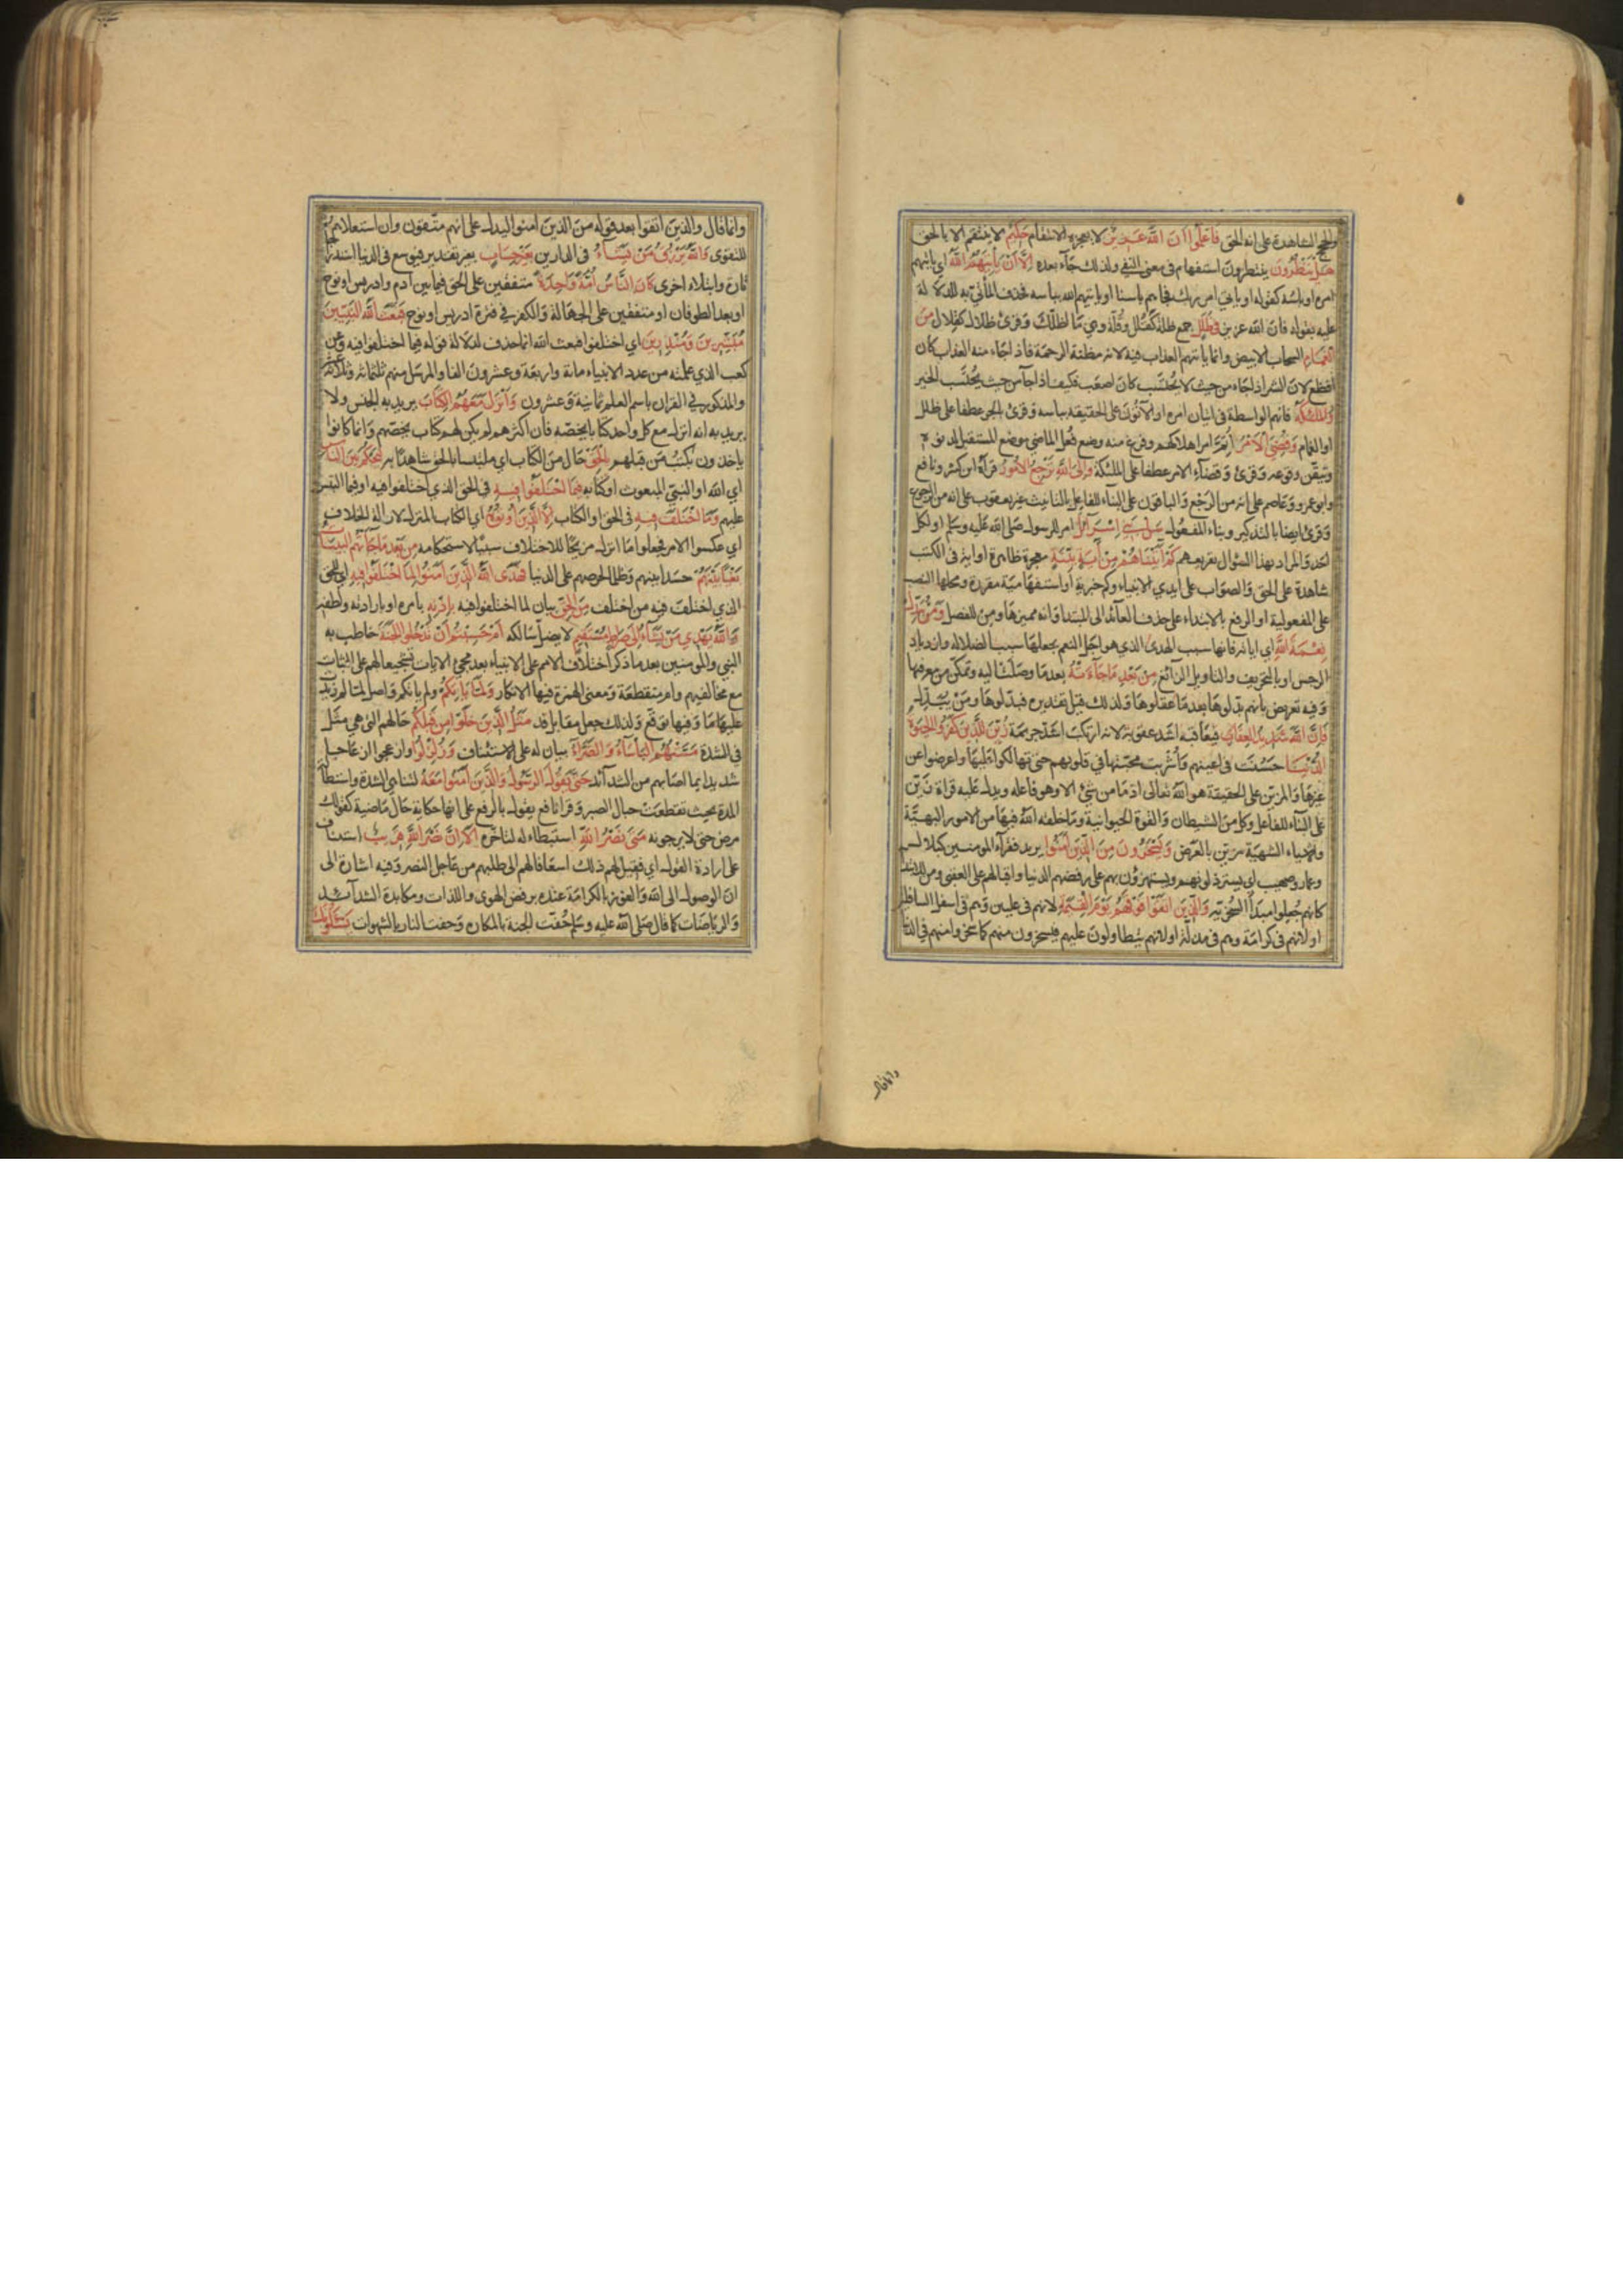 والحجج الشاهدة على انه الحق فَاعْلَمُوا اَنَّ اللّٰهَ عَزِيزٌ لا يعجزه الانتقام حَكِيمٌ لا ينتقم الا بالحق
هَلْ يَنْظُرُونَ ينتظرون استفهام في معنى النفي ولذلك جآء بعده اِلَّا اَنْ يَأْتِيَهُمُ اللّٰهُ اي ياتيهم
امره او باسه كقوله او ياتي امر ربك فجاءهم باسنا او ياتيهم الله بباسه فحذف المأتيّ به للدلالة
عليه بقوله فان الله عزيز فِي ظُلَلٍ جمع ظلة كقُلّة وقُلَل وهي ما اظلّك وقرئ ظلال كقلال مِنَ
الغَمَامِ السحاب الابيض وانما ياتيهم العذاب فيه لانه مظنة الرحمة فاذا جاء منه العذاب كان
افظع لان الشر اذا جاء من حيث لا يُحْتَسَب كان اصعب فكيف اذا جآء من حيث يُحْتَسَب الخير
وَالمَلٰئِكَةُ فانهم الواسطة في اتيان امره او الآتون على الحقيقة بباسه وقرئ بالجر عطفا على ظلل
او الغمام وَقُضِيَ الْاَمْرُ اُتِمّ امر اهلاكهم وفرغ منه وضع فُعل الماضي موضع المستقبل لدنوّه
وتيقّن وقوعه وقرئ وقضآء الامر عطفا على الملئكة وَاِلَى اللّٰهِ تُرْجَعُ الْاُمُورُ قرأه ابن كثير ونافع
وابو عمرو وعاصم على انه من الرّجع والباقون على البناء للفاعل بالتانيث غير يعقوب على انه من الرجوع
وقرئ ايضا بالتذكير وبناء المفعول سَلْ بَنِي اِسْرَآئِيلَ امر للرسول صلى الله عليه وسلم او لكل
احد والمراد بهذا السؤال تقريعهم كَمْ اٰتَيْنَاهُمْ مِنْ اٰيَةٍ بَيِّنَةٍ معجزة ظاهرة او اية في الكتب
شاهدة على الحق والصواب على ايدي الانبياء وكم خبرية او استفهامية مقررة ومحلها النصب
على المفعولية او الرفع بالابتداء على حذف العائد الى المبتدا واية مميزها ومن للفصل وَمَنْ يُبَدِّلْ
نِعْمَةَ اللّٰهِ اي اياته فانها سبب الهدى الذي هو اجلّ النعم بجعلها سبب الضلالة وازدياد
الرجس او بالتحريف والتاويل الزائغ مِنْ بَعْدِ مَاجَآءَتْهُ بعدما وصلت اليه وتمكّن من معرفتها
وفيه تعريض بانهم بدّلوها بعدما عقلوها ولذلك قيل تقديره فبدّلوها ومن يبدّل
فَاِنَّ اللّٰهَ شَدِيدُ العِقَابِ فيعاقبه اشد عقوبة لانه ارتكب اشدّ جريمة زُيِّنَ لِلَّذِينَ كَفَرُوا الحَيٰوةُ
الدُّنْيَا حَسُنَت في اعينهم واُشْرِبَت محبّتها في قلوبهم حتى تهالكوا عليها واعرضوا عن
غيرها والمزيّن على الحقيقة هو الله تعالى اذ ما من شئ الا وهو فاعله ويدل عليه قراة زَيّن
على البناء للفاعل وكل من الشيطان والقوة الحيوانية وما خلقه الله فيها من الامور البهيّة
والاشياء الشهيّة مزيّن بالعَرَض وَيَسْخَرُونَ مِنَ الَّذِينَ اٰمَنُوا يريد فقرآء المومنين كبلال
وعمار وصهيب اي يسترذلونهم ويستهزؤن بهم على رفضهم الدنيا واقبالهم على العقبى ومن للابتداء
كانهم جعلوا مبدأ السخرية وَالَّذِينَ اتَّقَوْا فَوْقَهُمْ يَوْمَ القِيٰمَةِ لانهم في عليين وهم في اسفل السافلين
او لانهم في كرامة وهم في مذلة او لانهم يتطاولون عليهم فيسخرون منهم كما سخروا منهم في الدنيا
وانما قال
وانما قال والذين اتقوا بعد قوله من الذين امنوا ليدل على انهم متّقون وان استعلاءهم
للتقوى وَاللّٰهُ يَرْزُقُ مَنْ يَشَآءُ في الدارين بِغَيْرِ حِسَابٍ بغير تقدير فيوسع في الدنيا استدراجا
تارة وابتلاء اخرى كَانَ النَّاسُ اُمَّةً وَاحِدَةً متفقين على الحق فيما بين ادم وادريس او نوح
او بعد الطوفان او متفقين على الجهالة والكفر في فترة ادريس او نوح فَبَعَثَ اللّٰهُ النَّبِيِّينَ
مُبَشِّرِينَ وَمُنْذِرِينَ اي اختلفوا فبعث الله انما حذف لدلالة قوله فيما اختلفوا فيه وعن
كعب الذي علمته من عدد الانبياء مائة واربعة وعشرون الفا والمرسل منهم ثلثمائة وثلاثة عشر
والمذكور في القران باسم العلم ثمانية وعشرون وَاَنْزَلَ مَعَهُمُ الكِتَابَ يريد به الجنس ولا
يريد به انه انزل مع كل واحد كتابا يخصّه فان اكثرهم لم يكن لهم كتاب يخصهم وانما كانوا
ياخذون بكتب من قبلهم بِالْحَقِّ حال من الكتاب اي ملتبسا بالحق شاهدًا به لِيَحْكُمَ بَيْنَ النَّاسِ
اي الله او النبيّ المبعوث او كتابه فِيمَا اخْتَلَفُوا فِيهِ في الحق الذي اختلفوا فيه او فيما التبس
عليهم وَمَا اخْتَلَفَ فِيهِ في الحق او الكتاب اِلَّا الَّذِينَ اُوتُوهُ اي الكتاب المنزل لازالة الخلاف
اي عكسوا الامر فجعلوا ما انزل مزيحًا للاختلاف سببًا لاستحكامه مِنْ بَعْدِ مَاجَآءَتْهُمُ البَيِّنَاتُ
بَغْيًا بَيْنَهُمْ حسدا بينهم وظلما لحرصهم على الدنيا فَهَدَى اللّٰهُ الَّذِينَ اٰمَنُوا لِمَا اخْتَلَفُوا فِيهِ اي للحق
الذي اختلف فيه من اختلف مِنَ الحَقِّ بيان لما اختلفوا فيه بِاِذْنِهِ بامره او بارادته ولطفه
وَاللّٰهُ يَهْدِي مَنْ يَشَآءُ اِلَى صِرَاطٍ مُسْتَقِيمٍ لا يضلّ سالكه اَمْ حَسِبْتُمْ اَنْ تَدْخُلُوا الجَنَّةَ خاطب به
النبي والمومنين بعدما ذكر اختلاف الامم على الانبياء بعد مجئ الايات تشجيعا لهم على الثبات
مع مخالفيهم وام منقطعة ومعنى الهمزة فيها الانكار وَلَمَّا يَأْتِكُمْ ولم ياتكم واصل لما لم زيدت
عليها ما وفيها توقع ولذلك جعل مقابل قد مَثَلُ الَّذِينَ خَلَوْا مِنْ قَبْلِكُمْ حالهم التي هي مثل
في الشدة مَسَّتْهُمُ البَأْسَآءُ وَالضَّرَّآءُ بيان له على الاستئناف وَزُلْزِلُوا وازعجوا ازعاجا
شديدا بما اصابهم من الشدآئد حَتَّى يَقُولَ الرَّسُولُ وَالَّذِينَ اٰمَنُوا مَعَهُ لتناهي الشدة واستطالة
المدة بحيث تقطعت حبال الصبر وقرا نافع يقول بالرفع على انها حكاية حال ماضية كقولك
مرض حتى لا يرجونه مَتَى نَصْرُ اللّٰهِ استبطاء له لتاخره اَلَا اِنَّ نَصْرَ اللّٰهِ قَرِيبٌ استئناف
على ارادة القول اي فقيل لهم ذلك اسعافا لهم الى طلبهم من عاجل النصر وفيه اشارة الى
ان الوصول الى الله والفوز بالكرامة عنده برفض الهوى واللذات ومكابدة الشدآئد
والرياضات كما قال صلى الله عليه وسلم حُفّت الجنة بالمكاره وحفت النار بالشهوات يَسْئَلُونَكَ